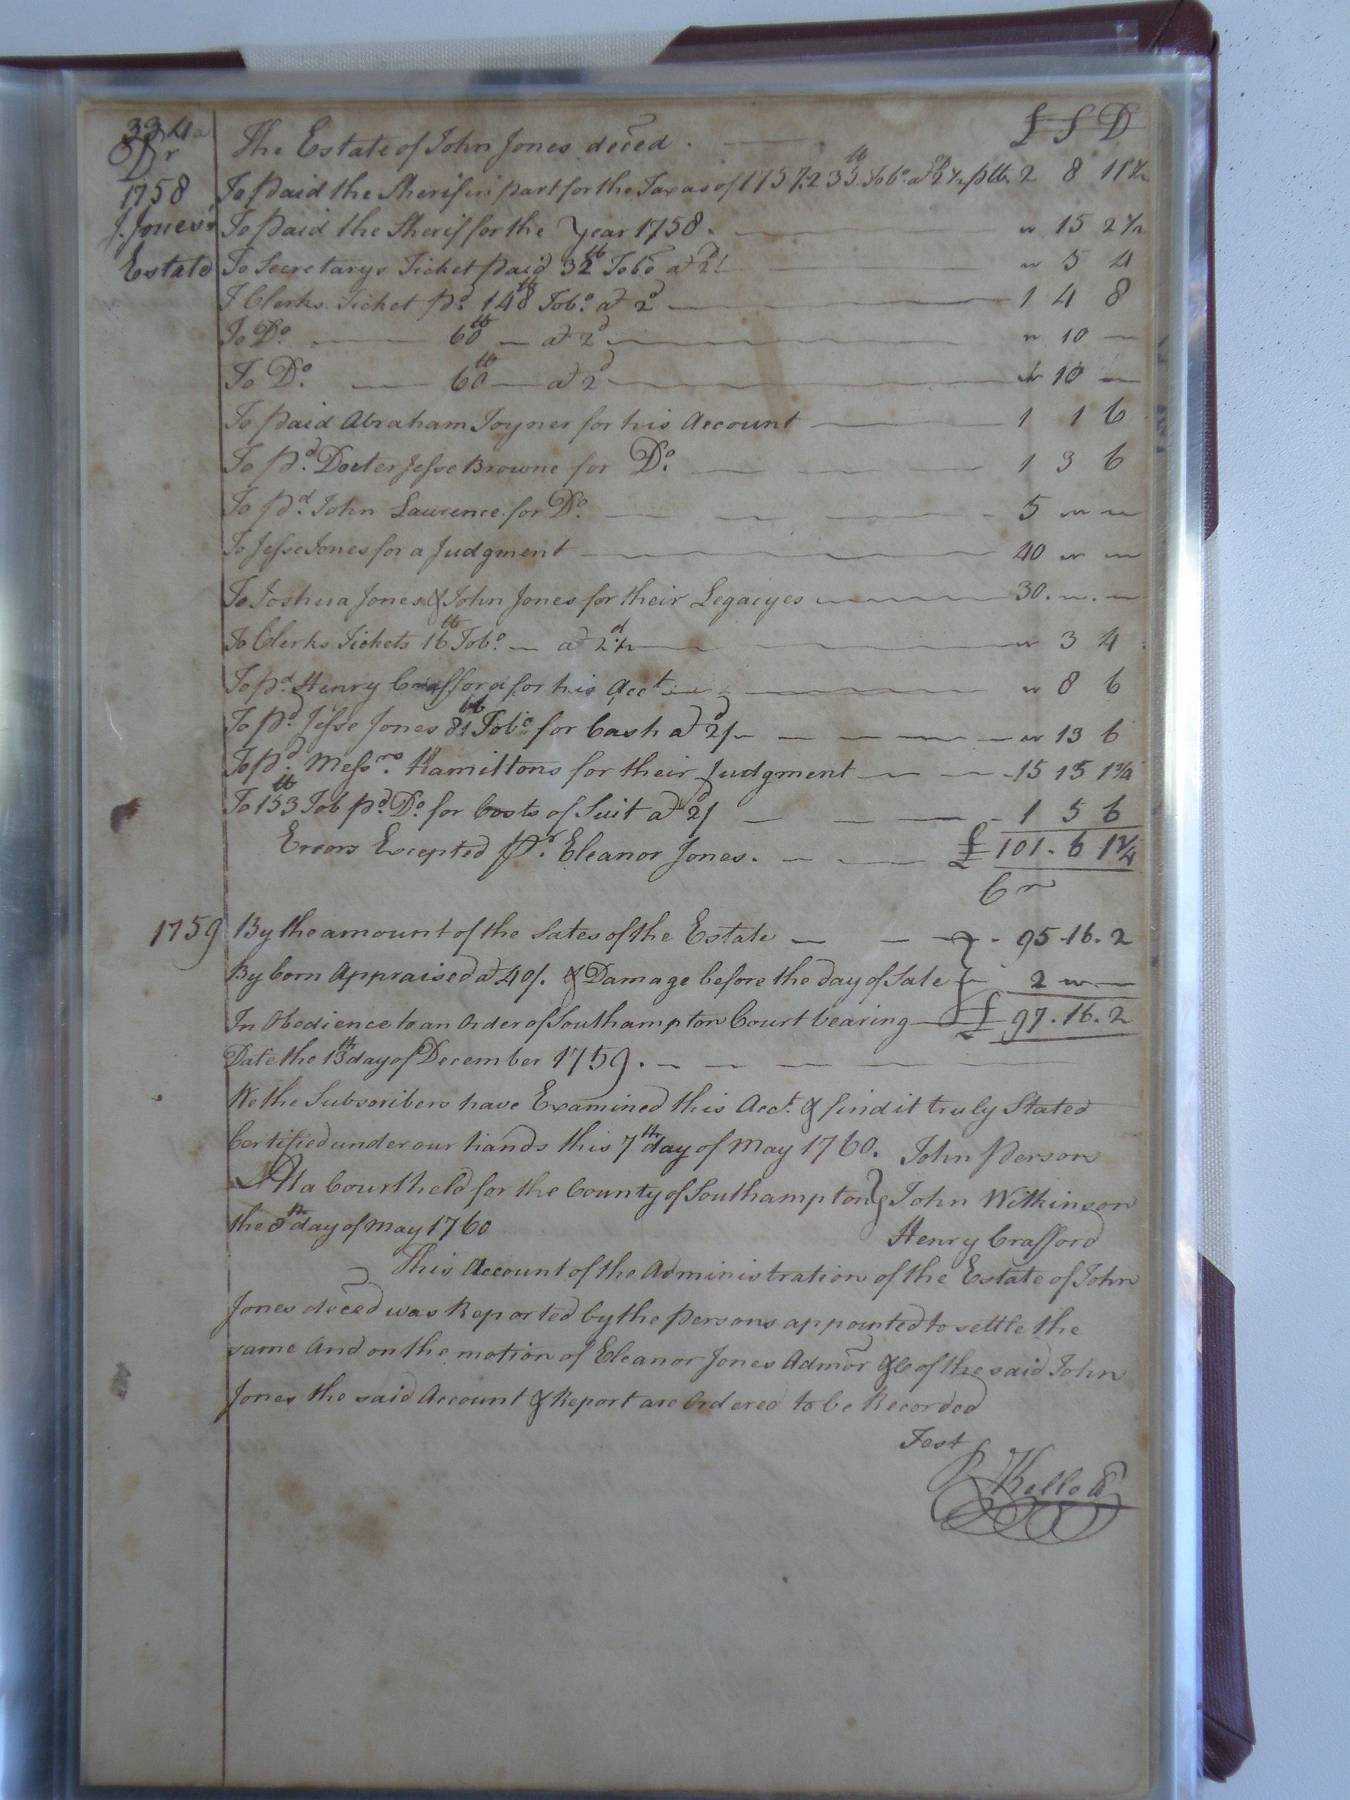 334 a The Estate of John Jones deced. £ S D
Dr
1758 To paid the Sherif in part for the Taxas of 1757. 235 lb Tobo. at 2d ½ p lb. 2 8 11½
J. Jones's To paid the Sherif for the Year 1758. " 15 2½
Estate To Secretarys Ticket paid 32 lb Tobo at 2d " 5 4
T Clerks Ticket pd. 148 lb Tobo. at 2d 1 4 8
To Do. 60 lb at 2d " 10 —
To Do. 60 lb at 2d " 10 —
To paid Abraham Joyner for his Account 1 1 6
To Pd. Docter Jesse Browne for Do. 1 3 6
To pd. John Lawrence for Do. 5 " "
To Jesse Jones for a Judgment 40 " "
To Joshua Jones & John Jones for their Legacyes 30. " . "
To Clerks Tickets 16 lb Tobo. at 2d ½ " 3 4
To pd Henry Crafford for his Acct. " 8 6
To pd. Jesse Jones 81 lb Tobo for Cash at 2d " 13 6
To pd. Messrs. Hamiltons for their Judgment 15 15 1¾
To 153 lb Tob pd. Do. for Costs of Suit at 2d 1 5 6
Errors Excepted pr. Eleanor Jones. £ 101. 6 1¼
Cr
1759 By the amount of the Sales of the Estate 95. 16. 2
By Corn Appraised at 40/. & Damage before the day of Sale 2 " —
In Obedience to an Order of Southampton Court bearing £ 97. 16. 2
Date the 13th day of December 1759.
We the Subscribers have Examined this Acct. & find it truly Stated
Certified under our hands this 7th day of May 1760. John Person
At a Court held for the County of Southampton } John Wilkinson
the 8th day of May 1760 Henry Crafford
This Account of the Administration of the Estate of John
Jones deced was Reported by the Persons appointed to settle the
same And on the motion of Eleanor Jones Admor &c of the said John
Jones the said Account & Report are Ordered to be Recorded
Test